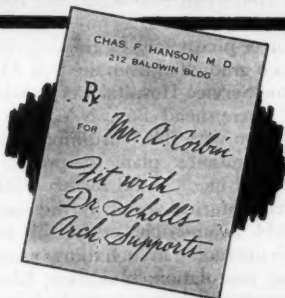 CHAS. F. HANSON M D
212 BALDWIN BLDG
℞
FOR Mr. A. Corbin
Fit with
Dr. Scholl's
Arch Supports